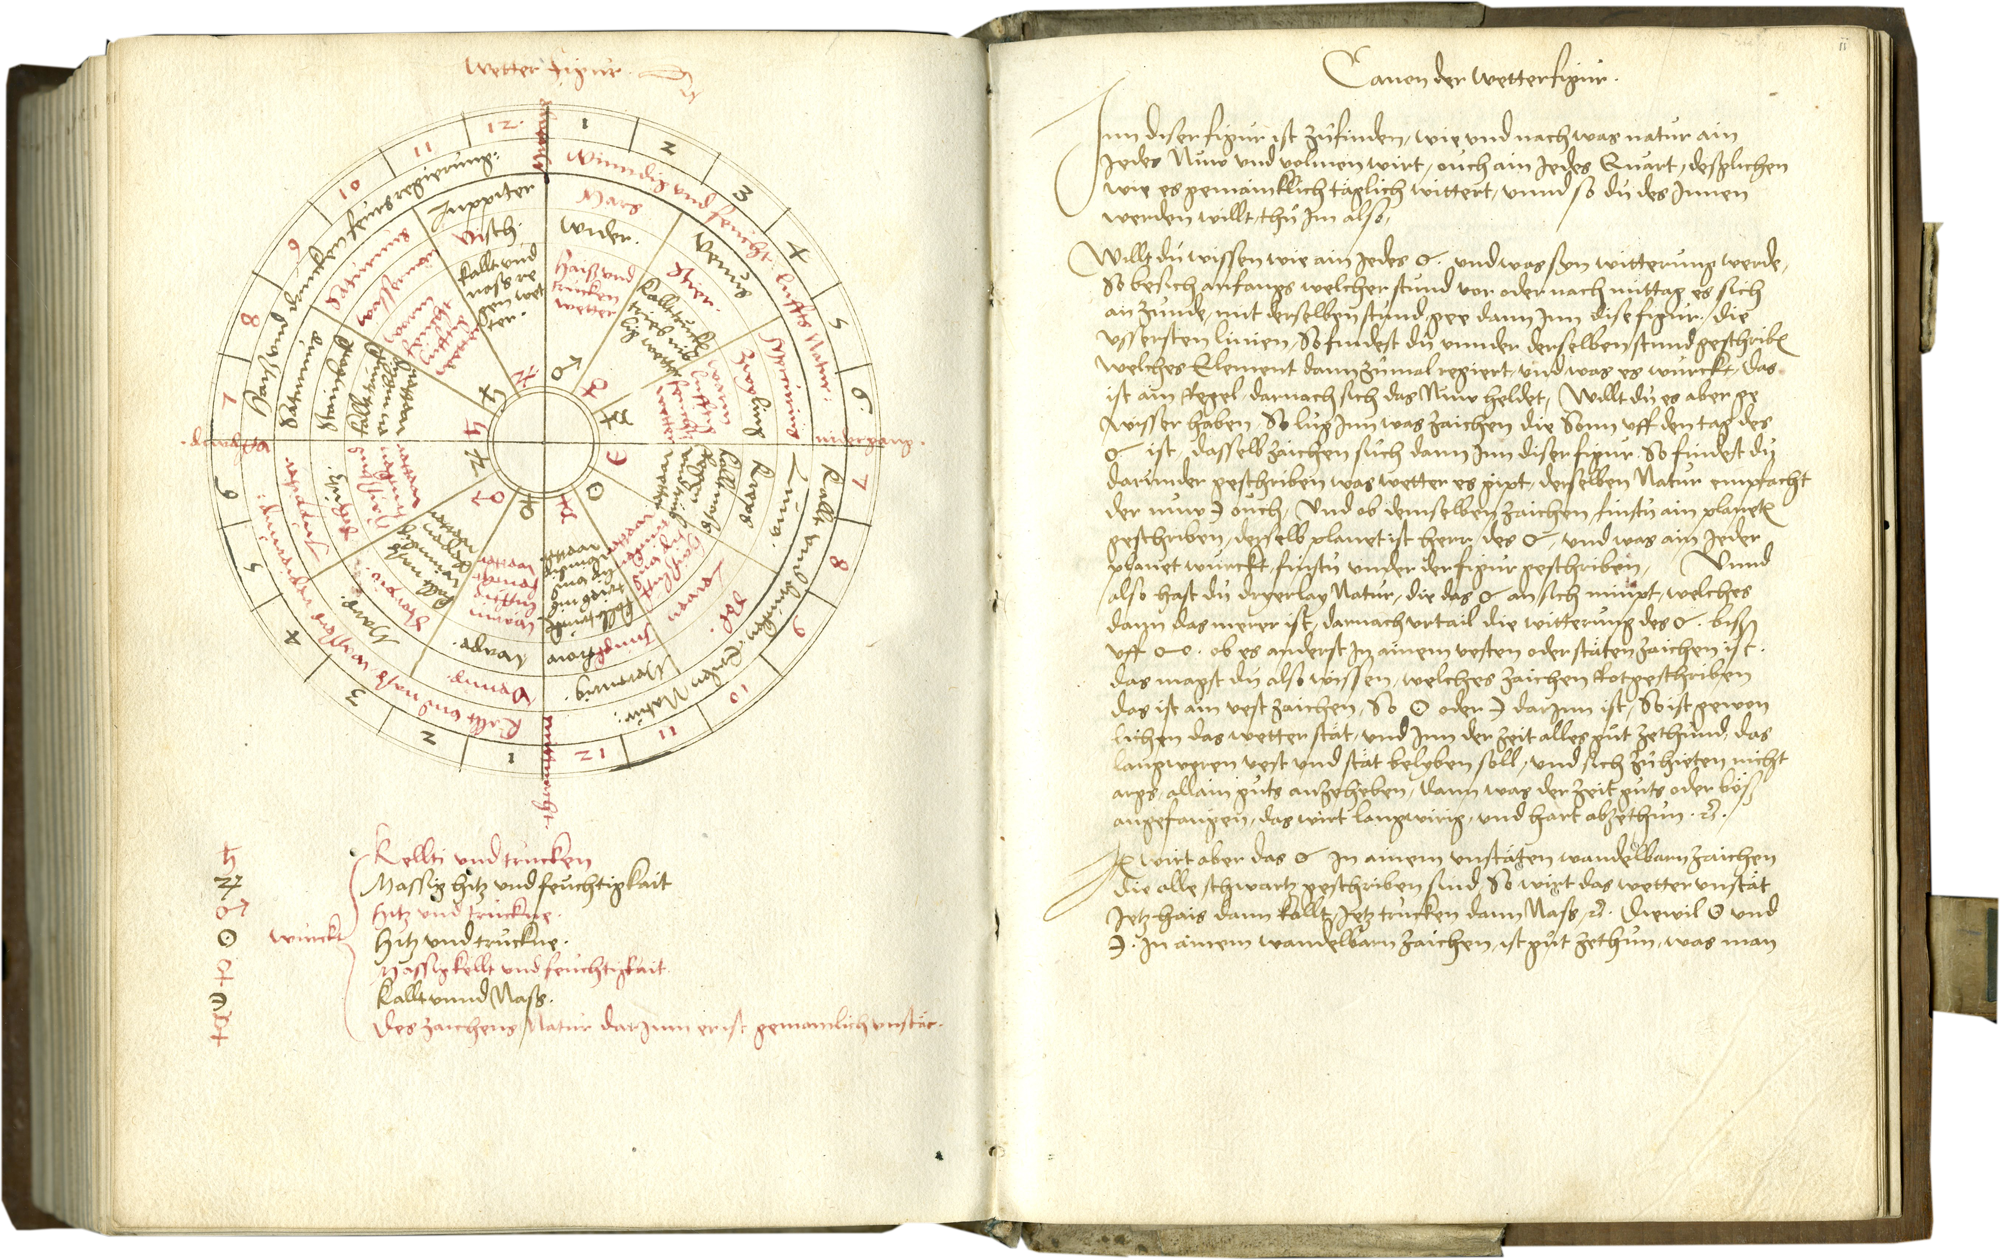 Wetter Figur.
12. 1 2 3 4 5 6.
7 8 9 10 11 12
1 2 3 4 5 6
7 8 9 10 11
mittag
nidergang.
mitternacht.
Winndig und feucht. luffts Natur.
Kallt und trucken. Erden Natur.
Kallt und nass wassers regierung.
fürs regierung.
Mars
wider.
haiß und
trucken
wetter
Venus
Stier.
Kallt truck
Mercurius
Zwyling
warm
lufftig
Luna.
Kreps
Sol.
Leuw
Mercurig.
Junckfrow
Venus.
Waage.
warm
lufftig
feucht
wetter
Mars.
Scorpio.
Juppiter.
Schütz.
Saturnus
Stainbock
Saturnus
Wasserman
Juppiter
Visch.
Kallt und
nass re
gen wet
ter.
♄
♃
♂
☉
♀
☾
☿
würckt
Kellti und trucken
Massig hitz und feuchtigkait
Hitz und truckne.
Hitz und truckne.
Massig kellt und feuchtigkait.
Kallt unnd Nass.
Des zaichens Natur darjnn er ist gemainlich unstät.
ii
Canon der Wetterfigur.
Inn diser figur ist zůfinden, wie und nach was natur ain
Jedes Nüw und volmen wirt, ouch ain Jedes Quart, deßglichen
wie es gemainklich täglich wittert, unnd so du des Innen
werden willt, thů Im also,
Willt du wissen wie ain Jedes ☌. und was syn witterung werde,
So besich anfangs welcher stund vor oder nach mittag es sich
anzünde, mit derselben stund gee dann Inn dise figur, die
ussersten linien, So findest du unnder derselben stund geschribē
welches Element dann zůmal regiert, und was es würckt, Das
ist ain Regel, darnach sich das Nüw heldet, Willt du es aber ge
wisser haben, So lůg Inn was zaichen die Sonn uff den tag des
☌ ist, dasselb zaichen sůch dann Inn diser figur. So findest du
darunder geschriben was wetter es gipt, derselben Natur empfacht
der nüw ☽ ouch, Und ob demselben zaichen findstu ain planetē
geschriben, derselb planet ist herr des ☌, und was ain Jeder
planet würckt, findstu under der figur geschriben, Unnd
also hast du dryerlay Natur, die das ☌ an sich nimpt, welches
dann das merer ist, darnach urtail die witterung des ☌. biß
uff ☍. ob es anderst In ainem vesten oder stäten zaichen ist.
das magst du also wissen, welches zaichen Rot geschriben
das ist ain vest zaichen, So ☉ oder ☽ darInn ist, So ist gewon
lichen das wetter stät, und Inn der zeit alles gůt zethůnd, das
langweren vest und stät belyben soll, und sich zů hüeten nicht
args, allain gůts anzeheben, dann was der zeit gůts oder böß
angefangen, das wirt langwirig, und hart abzethun. &.
Es wirt aber das ☌ In ainem unstäten wandelbarn zaichen
die alle schwartz geschriben sind, So wirt das wetter unstät
Jetz hais dann kallt, Jetz trucken dann Nass, &. Diewil ☉ und
☽. In ainem wandelbarn zaichen, ist gůt zethun, was man